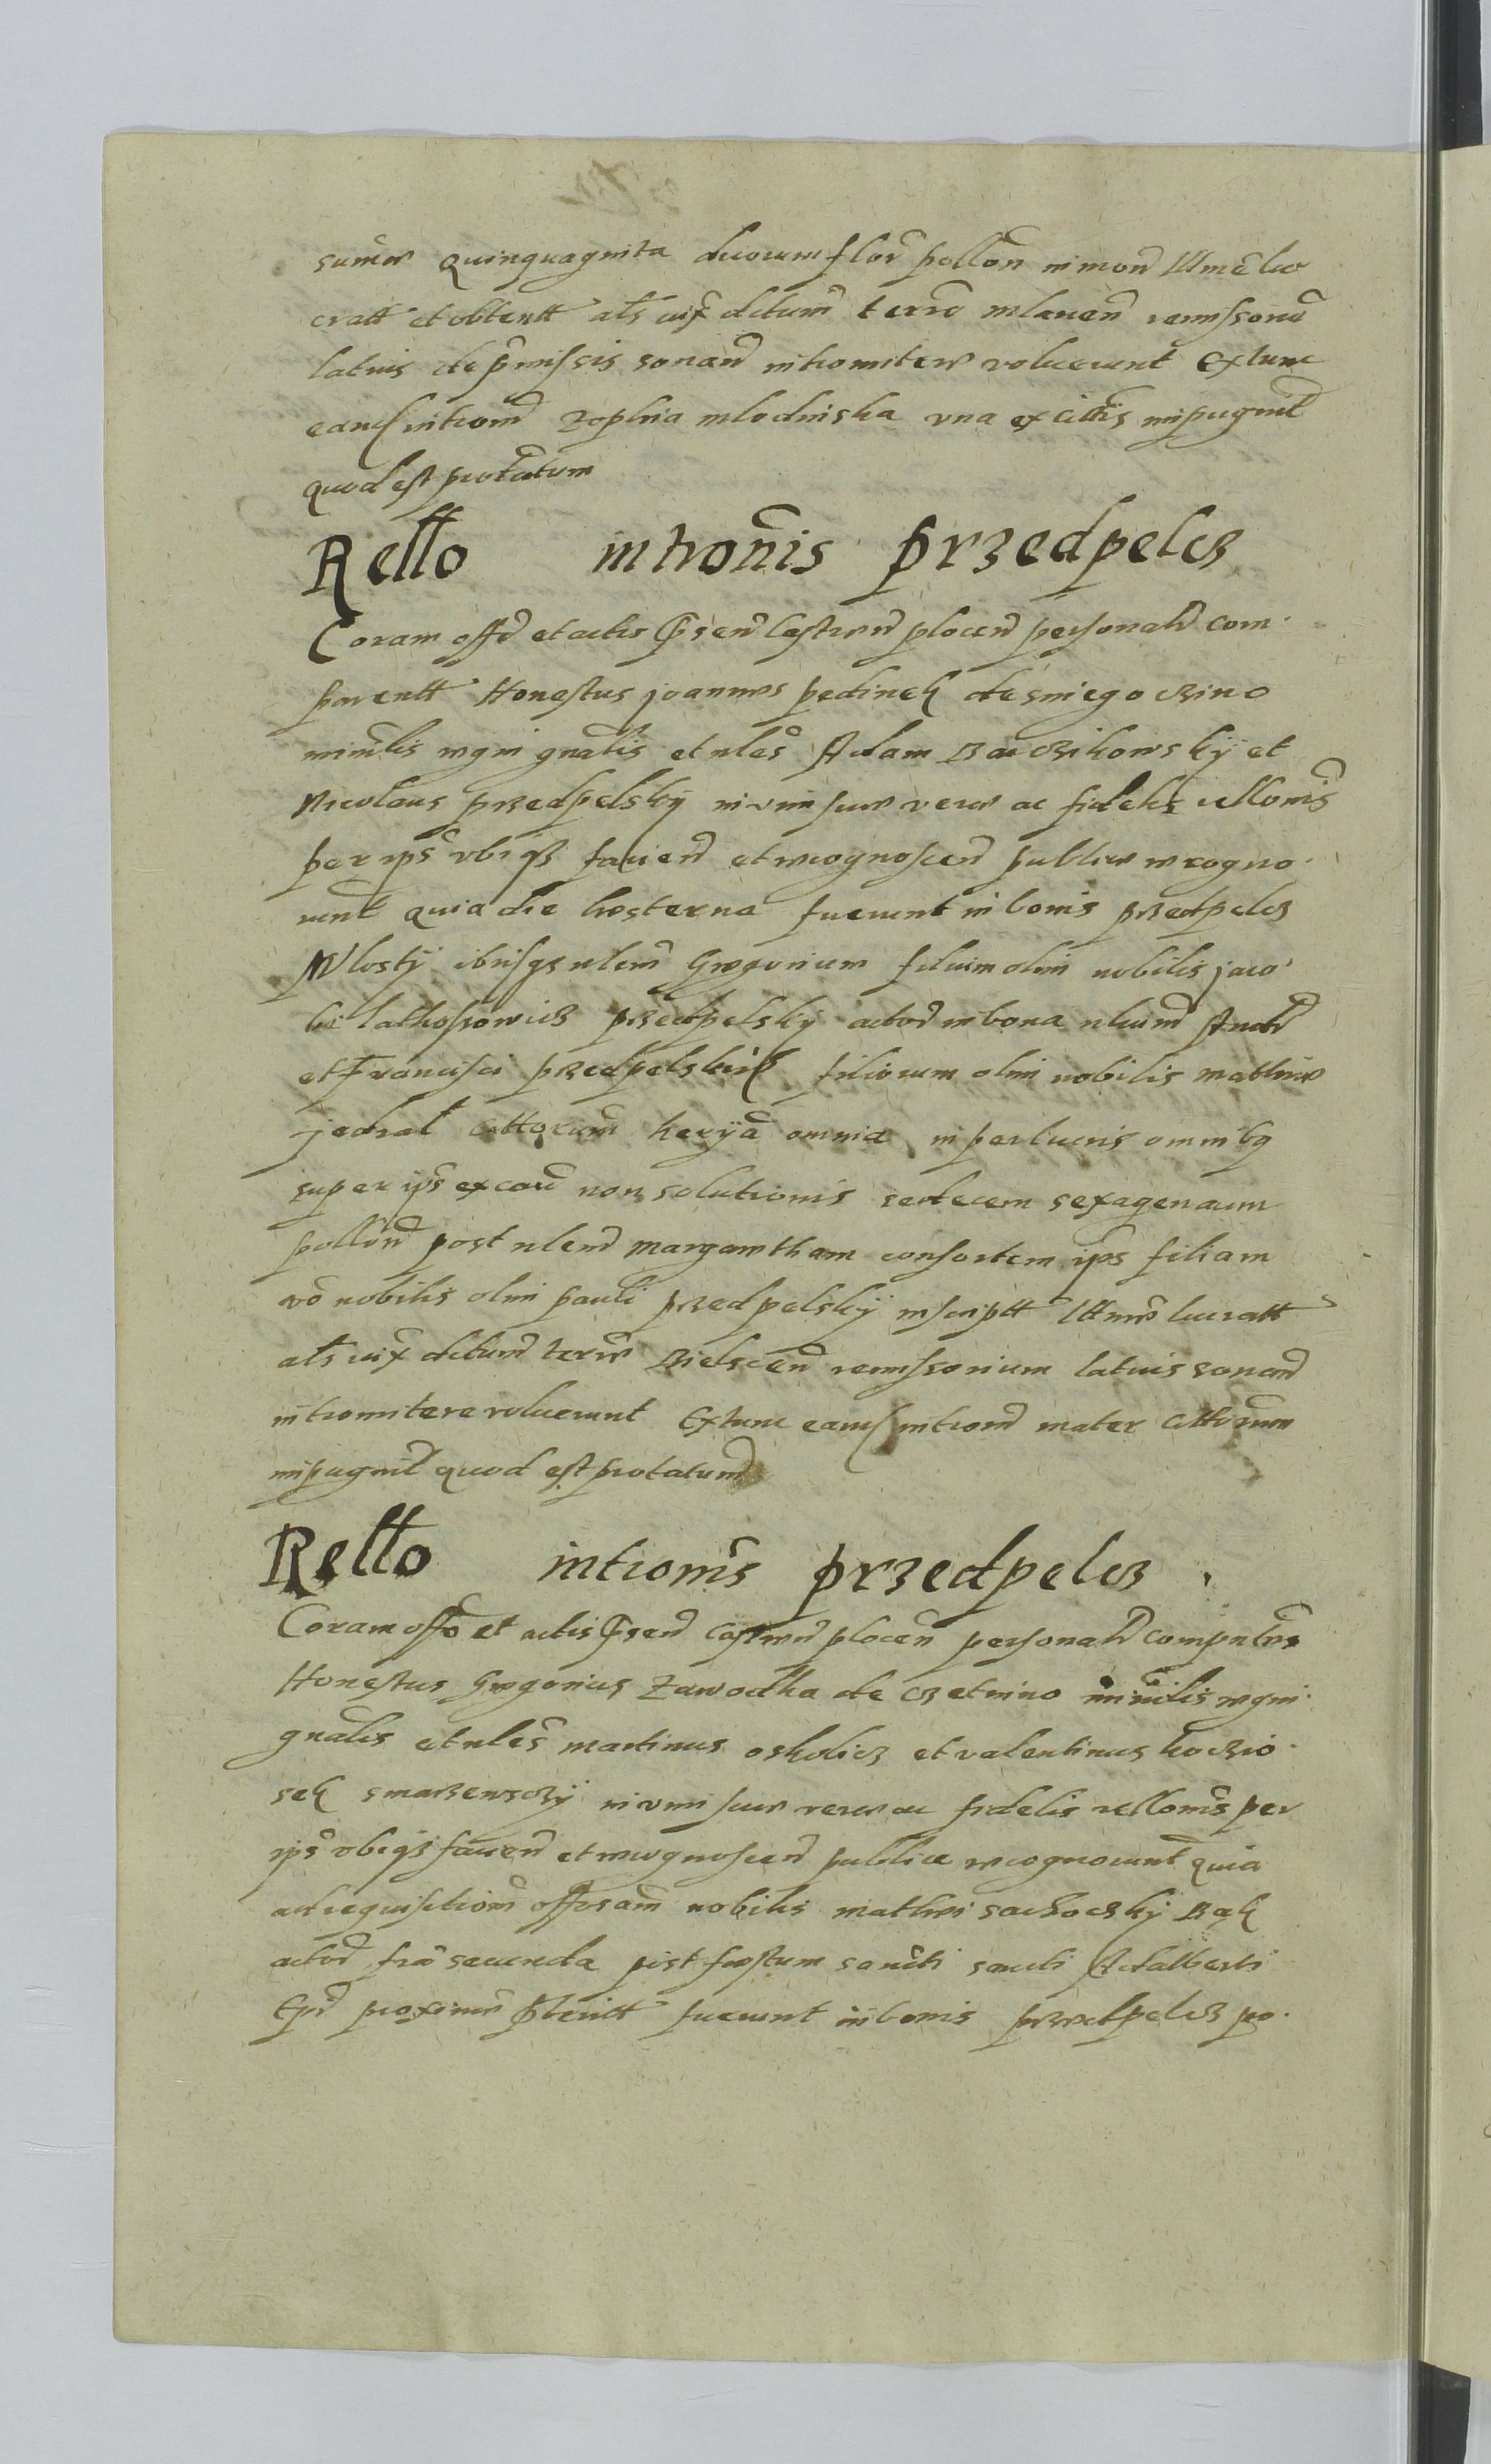 sumē quinquaginta duorum flor̄ pollon̄ in mon̄ Ultimē lu
cratt et obtentt als̄ iux̄ dctum̄ terrē mlauen̄ remissoriū
latius de p̄missis sonan̄ intromitere voluerunt Extunc
eand̄ introm̄ zophia mlodinska vna ex cittis̄ inpugnit̄
quod est protatum
Rello intromis̄ przedpelcz
Coram offō et actis p̄sen̄ Castren̄ plocen̄ personalr̄ com
parentt Honestus joannes pedinek de sniegoczino
minrlis̄ regni gnalis̄ et nles̄ Adam Baczikowskÿ et
Nicolaus przedpelskÿ in vim sue vere ac fidelis rellonis̄
per ips̄ vbiqz facien̄ et recognoscen̄ publice recogno
runt quia die hesterna fuerunt in bonis przedpelcz
Wlostÿ ibiqz nlem̄ Gregorium filium olim nobilis jaco
bi lathossowicz przedpelskÿ actor̄ in bona nlium̄ Andr̄
et Francisci przedpelskich filiorum olim nobilis mathie
jedral̄ cittorum̄ herÿa omnia in perlucris omnibq
super ips̄ ex caū non solutionis sedecem sexagenarum
pollon̄ post nlem̄ margaretham consortem ips̄ filiam
vō nobilis olim pauli przedpelskÿ inscriptt Ultime lucratt
als̄ iux̄ dctum̄ terrē Bielscen̄ remissorium latius sonan̄
intromitere voluerunt Extunc eand̄ introm̄ mater cittorum
inpugnit̄ quod est protatum̄
Rello intromis̄ przedpelcz
Coram offō et actis p̄sen̄ Castren̄ plocen̄ personalr̄ compntes̄
Honestus Gregorius Zawodka de czetnino minrlis̄ regni
gnalis̄ et nles̄ martinus oskolicz et valentinus koczio
sek smarzensczÿ in vim sue vere ac fidelis rellonis̄ per
ips̄ vbiqz facien̄ et recognoscen̄ publice recognorunt̄ quia
ad requisitiom̄ offosam̄ nobilis mathei sachoczkÿ Bąk
actor̄ fria secunda post festum sancti sancti Adalberti
Epi̅ proxime p̄teritt fuerunt in bonis przedpelcz po